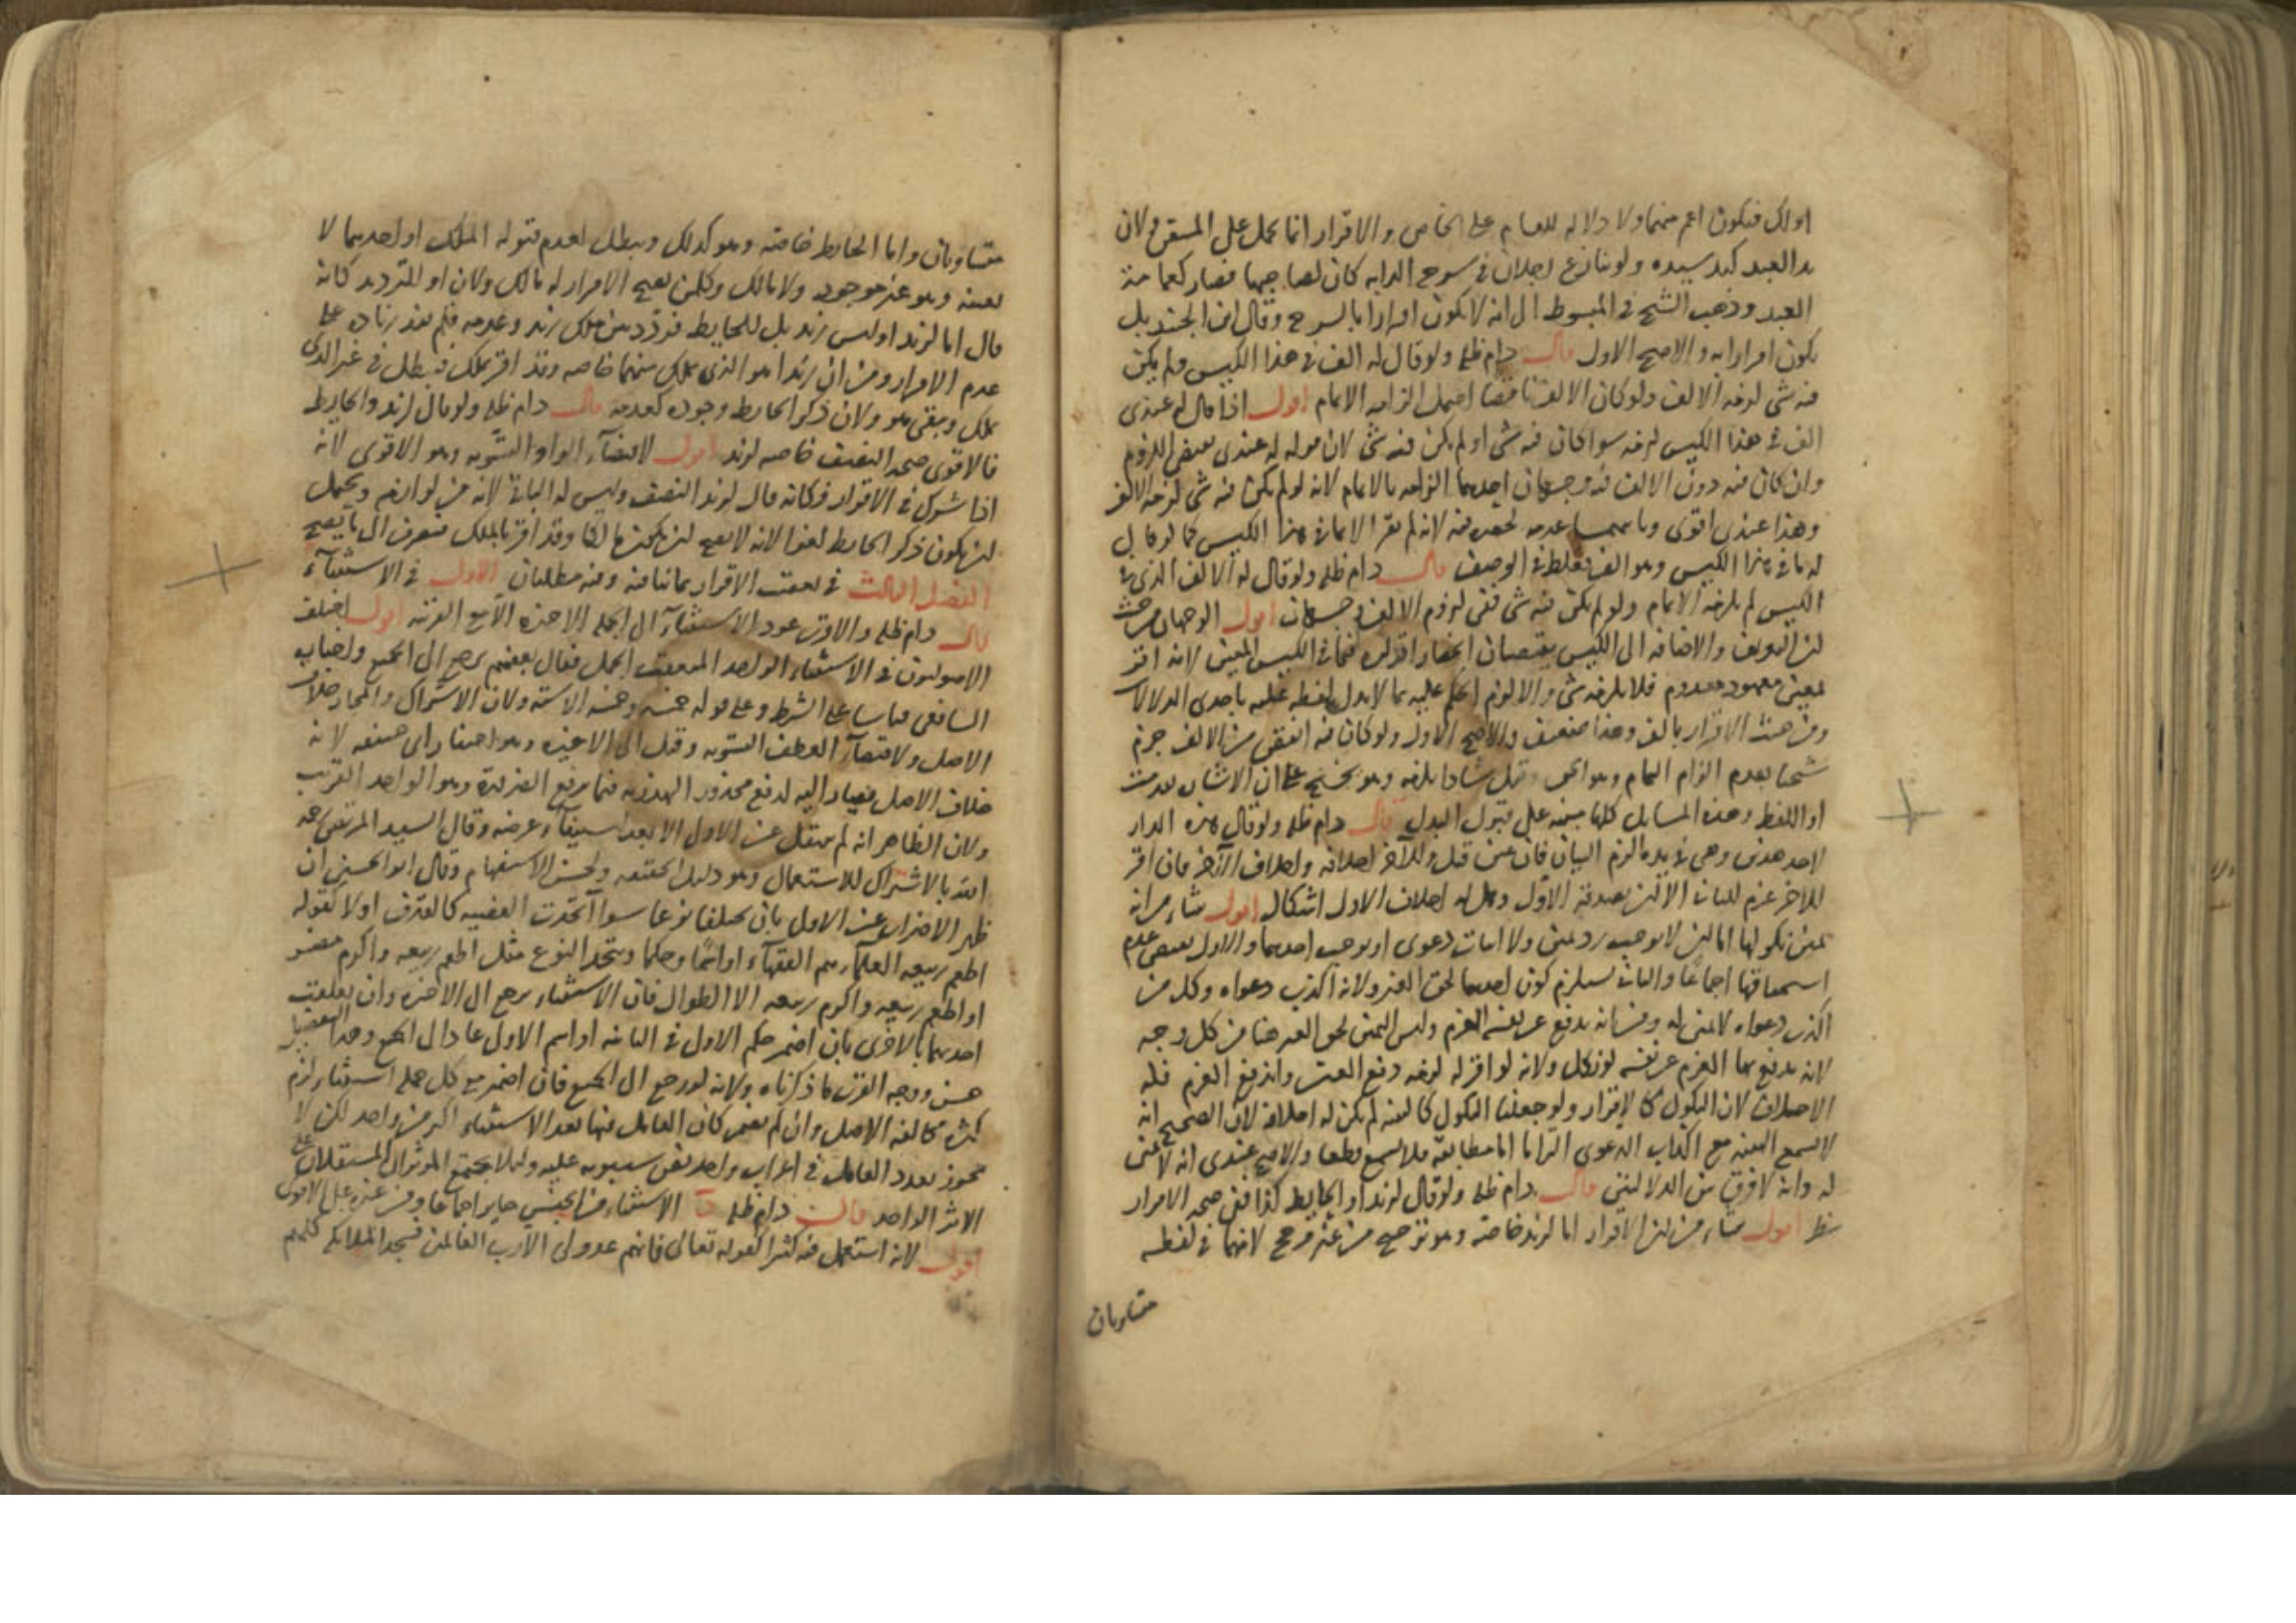 اولك فيكون اعم منهما ولا دلالة للعام على الخاص والاقرار انما يحمل على المتيقن ولان
يد العبد كيد سيده ولو تنازع رجلان في سرج الدابه كان لصاحبها فصار كعمامة
العبد وذهب الشيخ في المبسوط الى انه لا يكون اقرارا بالسرج وقال ابن الجنيد بل
يكون اقرارا به والاصح الاول قال دام ظله ولو قال له الف في هذا الكيس ولم يكن
فيه شي لزمه الالف ولو كان الالف ناقصا احتمل الزامه الاتمام اقول اذا قال له عندى
الف في هذا الكيس لزمه سوا كان فيه شي او لم يكن فيه شي لان قوله له عندى يقتضى اللزوم
وان كان فيه دون الالف فوجهان احدهما الزامه بالاتمام لانه لو لم يكن فيه شي لزمه الالف
وهذا عندى اقوى وثانيهما عدمه لحصره فيه لانه لم يقر الا بما في هذا الكيس كما لو قال
له ما في هذا الكيس وهو الف فغلط في الوصف قال دام ظله ولو قال له الالف الذى في
الكيس لم يلزمه الاتمام ولو لم يكن فيه شي ففى لزوم الالف وجهان اقول الوجهان من حيث
لن التعريف والاضافه الى الكيس يقتضيان انحصار اقراره فيما في الكيس المعين لانه اقر
بمعين معهود معدوم فلا يلزمه شي والا لزم الحكم عليه بما لا يدل لفظه عليه باحدى الدلالات
ومن حيث الاقرار بالف وهذا ضعيف والاصح الاول ولو كان فيه انقص من الالف جزم
شيخنا بعدم الزام التمام وهو الحق
او اللفظ وهذه المسايل كلها مبنيه على قبول البدل قال دام ظله ولو قال هذه الدار
لاحد هذين وهي في يده الزم البيان فان عين قبل وللآخر احلافه واحلاف الآخر فان اقر
للاخر غرم للثانى الا لن يصدقه الاول وهل له احلاف الاول اشكال اقول منشاه من انه
يمين نكولها اما لن لا يوجب رد يمين ولا اثبات دعوى او يوجب احدهما والاول يقتضى عدم
استحقاقها اجماعا والثانى يستلزم كون احدهما لحق الغير ولانه اكذب دعواه وكل من
اكذب دعواه لا يمين له ومن انه يدفع عن نفسه الغرم وليس اليمين لحق الغير هنا من كل وجه
لانه يدفع بها الغرم عن نفسه لو نكل ولانه لو اقر له لزمه دفع العين واندفع الغرم فله
الاحلاف لان النكول كالاقرار ولو جعلنا النكول كالبينه لم يكن له احلافه لان الصحيح انه
لا تسمع البينه مع اكذاب الدعوى التزاما اما مطابقة فلا تسمع قطعا والاصح عندى انه لا يمين
له وانه لا فرق بين الدلالتين قال دام ظله ولو قال لزيد او الحايط كذا ففى صحه الاقرار
نظر اقول منشاه من لن الاقرار اما لزيد خاصة وهو ترجيح من غير مرجح لانهما في لفظه
متساويان
متساويان واما الحايط خاصة وهو كذلك ويبطل لعدم قبوله الملك او احدهما لا
بعينه وهو غير موجود ولا مالك وكلمن يصح الاقرار له مالك ولان او للترديد كانه
قال اما لزيد او ليس لزيد بل للحايط فردد بين ملك زيد وعدمه فلم يفد زياده على
عدم الاقرار ومن ان زيدا هو الذى يملك منهما خاصه وقد اقر بملك فيبطل في غير الذى
يملك ويبقى هو ولان ذكر الحايط وجوده كعدمه قال دام ظله ولو قال لزيد والحايط
فالاقوى صحه النصف خاصه لزيد اقول لاقتضاء الواو التسويه وهو الاقوى لانه
اذا شرك في الاقرار فكانه قال لزيد النصف وليس له الباقى لانه من لوازمه ويحتمل
لن يكون ذكر الحايط لغوا لانه لا يصح لن يكون مالكا وقد اقر بالملك فيصرف الى ما يصح
الفصل الثالث في تعقيب الاقرار بما ينافيه وفيه مطلبان الاول في الاستثناء
قال دام ظله والاقرب عود الاستثناء الى الجملة الاخيره الا مع القرينه اقول اختلف
الاصوليون في الاستثناء الواحد المتعقب الجمل فقال بعضهم يرجع الى الجميع واختاره
الشافعى قياسا على الشرط وعلى قوله خمسه وخمسه الا سته ولان الاشتراك والمجاز خلاف
الاصل ولاقتضاء العطف التسويه وقيل الى الاخيره وهو اختيار ابى حنيفه لانه
خلاف الاصل فيصار اليه لدفع محذور الهذريه فيما يرفع الضرورة وهو الواحد القريب
ولان الظاهر انه لم ينتقل عن الاول الا بعد استيفاء غرضه وقال السيد المرتضى رحمه
الله بالاشتراك للاستعمال وهو دليل الحقيقه ولحسن الاستفهام وقال ابو الحسين ان
ظهر الاضراب عن الاول بان يختلفا نوعا سوا اتحدت القضيه كالقذف او لا كقوله
اطعم ربيعه العلماء هم الفقهاء او اسما وحكما ويتحد النوع مثل اطعم ربيعه واكرم مضر
او اطعم ربيعه واكرم ربيعه الا الطوال فان الاستثناء يرجع الى الاخيره وان تعلقت
احديهما بالاخرى بان اضمر حكم الاول في الثانيه او اسم الاول عاد الى الجميع وهذا التفصيل
حسن ووجه القرب ما ذكرناه ولانه لو رجع الى الجميع فان اضمر مع كل جمله استثناء لزم
كثره مخالفه الاصل وان لم يضمر كان العامل فيما بعد الاستثناء اكثر من واحد لكن لا
يجوز تعدد العامل في اعراب واحد بنص سيبويه عليه ولئلا يجتمع المؤثران المستقلان على
الاثر الواحد قال دام ظله الاستثناء من الجنس جايز اجماعا ومن غيره على الاقوى
اقول لانه استعمل فيه كثيرا كقوله تعالى فانهم عدو لى الا رب العالمين فسجد الملائكه كلهم